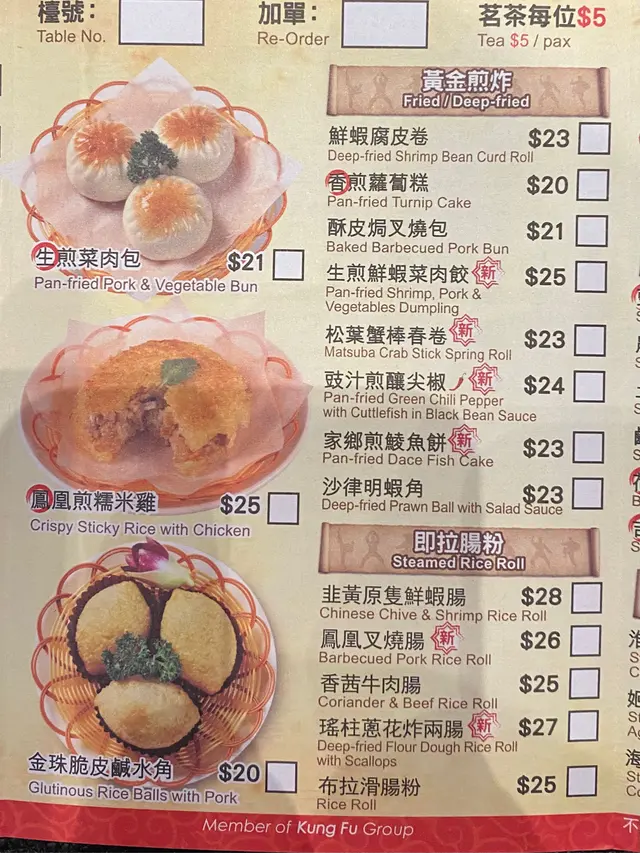 檯號：
Table No.
加單：
Re-Order
茗茶每位$5
Tea $5 / pax
生煎菜肉包 $21
Pan-fried Pork & Vegetable Bun
鳳凰煎糯米雞 $25
Crispy Sticky Rice with Chicken
金珠脆皮鹹水角 $20
Glutinous Rice Balls with Pork
黃金煎炸
Fried / Deep-fried
鮮蝦腐皮卷 $23
Deep-fried Shrimp Bean Curd Roll
香煎蘿蔔糕 $20
Pan-fried Turnip Cake
酥皮焗叉燒包 $21
Baked Barbecued Pork Bun
生煎鮮蝦菜肉餃 新 $25
Pan-fried Shrimp, Pork &
Vegetables Dumpling
松葉蟹棒春卷 新 $23
Matsuba Crab Stick Spring Roll
豉汁煎釀尖椒 新 $24
Pan-fried Green Chili Pepper
with Cuttlefish in Black Bean Sauce
家鄉煎鯪魚餅 新 $23
Pan-fried Dace Fish Cake
沙律明蝦角 $23
Deep-fried Prawn Ball with Salad Sauce
即拉腸粉
Steamed Rice Roll
韭黃原隻鮮蝦腸 $28
Chinese Chive & Shrimp Rice Roll
鳳凰叉燒腸 新 $26
Barbecued Pork Rice Roll
香茜牛肉腸 $25
Coriander & Beef Rice Roll
瑤柱蔥花炸兩腸 新 $27
Deep-fried Flour Dough Rice Roll
with Scallops
布拉滑腸粉 $25
Rice Roll
Member of Kung Fu Group
不